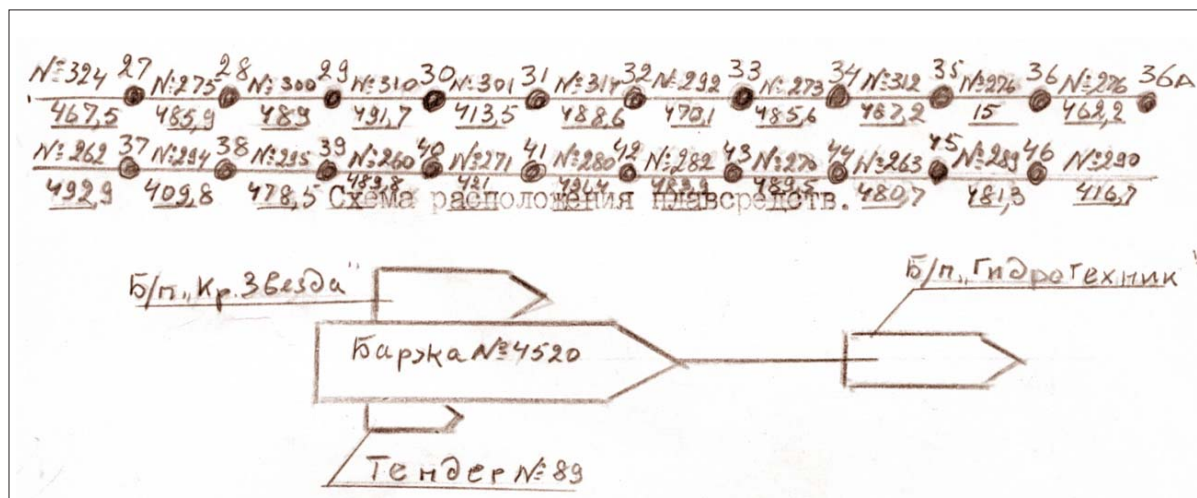 №324 27 №275 28 №300 29 №310 30 №301 31 №314 32 №292 33 №273 34 №312 35 №276 36 №276 36А
467,5 485,9 489 491,7 413,5 488,6 473,1 485,6 487,2 15 462,2
№262 37 №294 38 №295 39 №260 40 №271 41 №280 42 №282 43 №270 44 №263 45 №289 46 №290
492,9 409,8 478,5 489,8 421 489,5 480,7 481,3 416,7
Схема расположения плавсредств.
Б/п „Кр. Звезда"
Б/п „Гидротехник"
Баржа №4520
Тендер №89